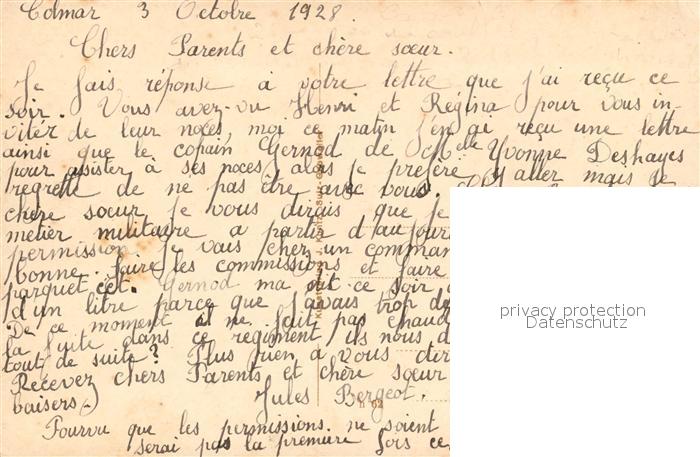 Colmar 3 Octobre 1928.
Chers Parents et chère sœur.
Je fais réponse à votre lettre que j'ai reçu ce
soir. Vous avez-vu Henri et Régina pour vous in-
viter de leur noces, moi ce matin j'en ai reçu une lettre
ainsi que le copain Gernod de Melle Yvonne Deshayes
pour assister à ses noces, alors je préfère y aller mais je
regrette de ne pas être avec vous.
chère sœur je vous dirais que je
métier militaire a partir d'aujour
permission je vais chez un comman
bonne. faire les commissions et faire
parquet cet. Gernod ma dit ce soir
d'un litre parce que j'avais trop de
De ce moment il ne fait pas chaud
la suite dans ce régiment, ils nous d
tout de suite? Plus rien à vous dir
Recevez chers Parents et chère sœur
baisers
Jules Bergeot.
Pourvu que les permissions. ne soient
serai pas la première fois ce
privacy protection
Datenschutz